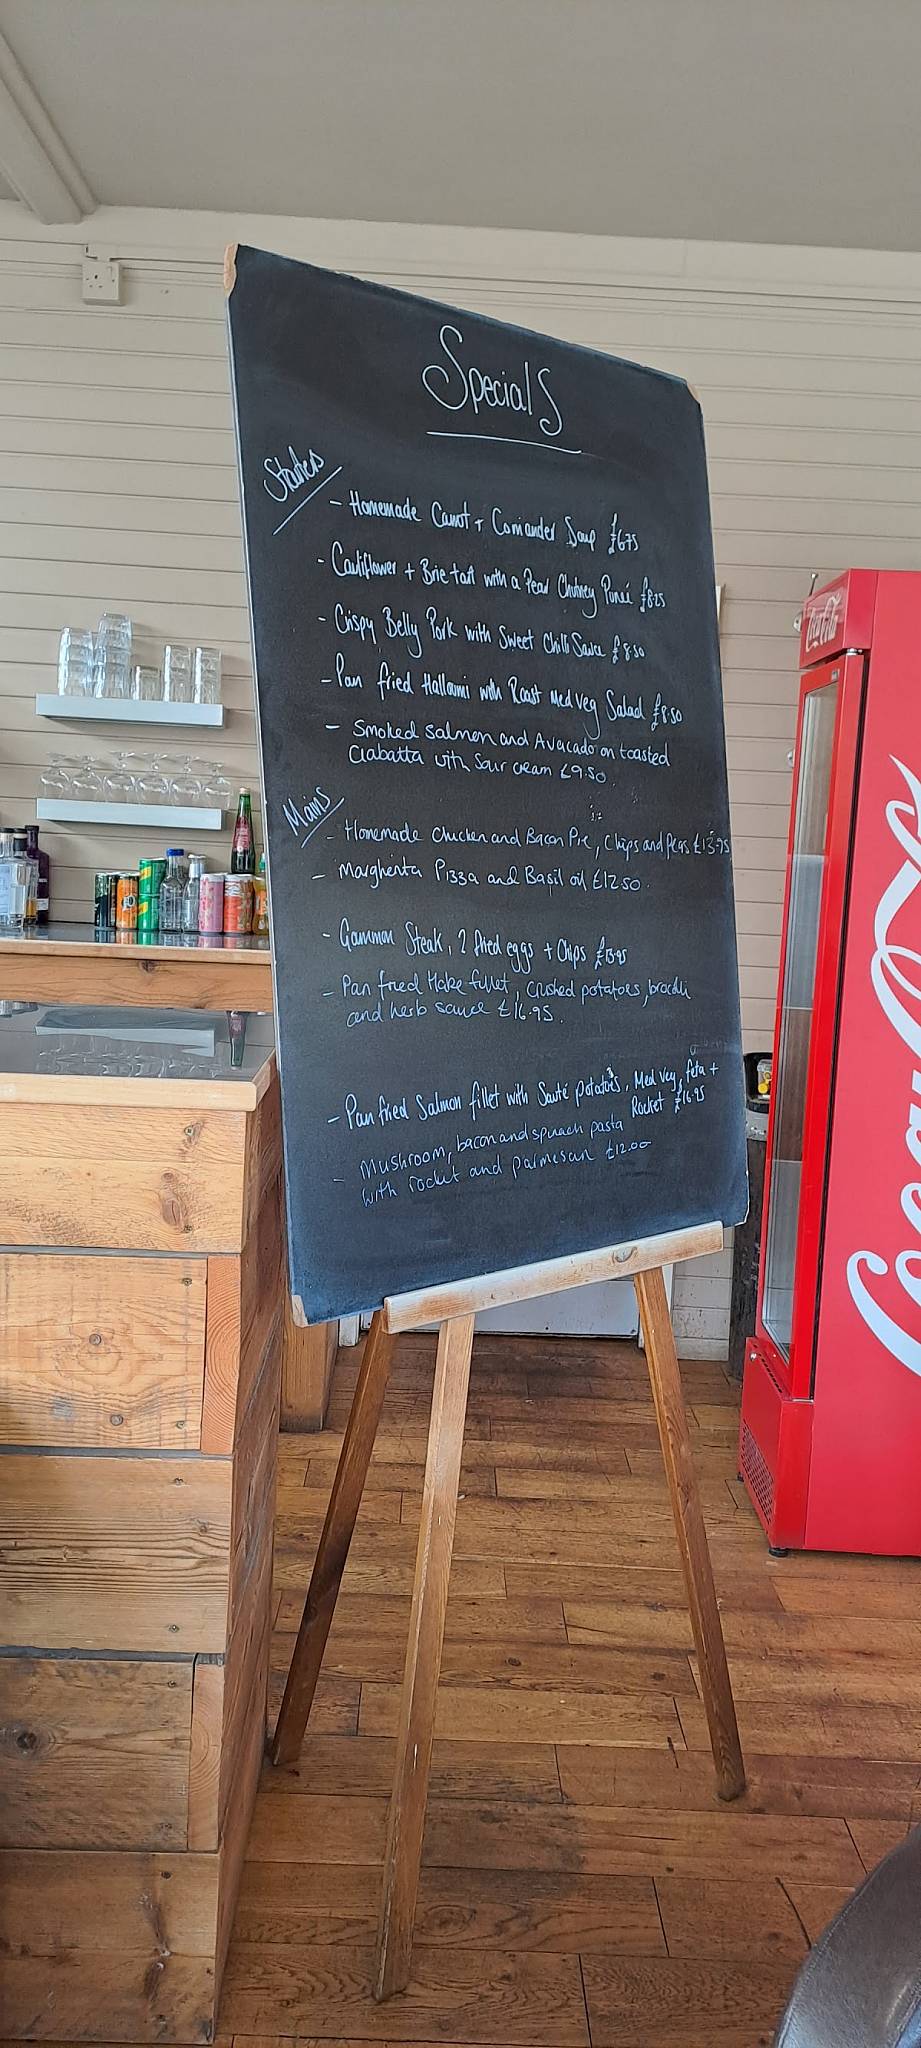 Specials
Starters
- Homemade Carrot + Coriander Soup £6.75
- Cauliflower + Brie tart with a Pear Chutney Purée £8.25
- Crispy Belly Pork with Sweet Chilli Sauce £8.50
- Pan fried Halloumi with Roast Med Veg Salad £8.50
- Smoked Salmon and Avacado on toasted
Ciabatta with Sour cream £9.50
Mains
- Homemade Chicken and Bacon Pie, Chips and Peas £13.95
- Margherita Pizza and Basil oil £12.50
- Gammon Steak, 2 fried eggs + Chips £13.95
- Pan fried Hake fillet, crushed potatoes, brocolli
and herb sauce £16.95.
- Pan fried Salmon fillet with Sauté potatoes, Med Veg, feta +
Rocket £16.95
- Mushroom, bacon and spinach pasta
with rocket and parmesan £12.00
Coca-Cola
Coca-Cola